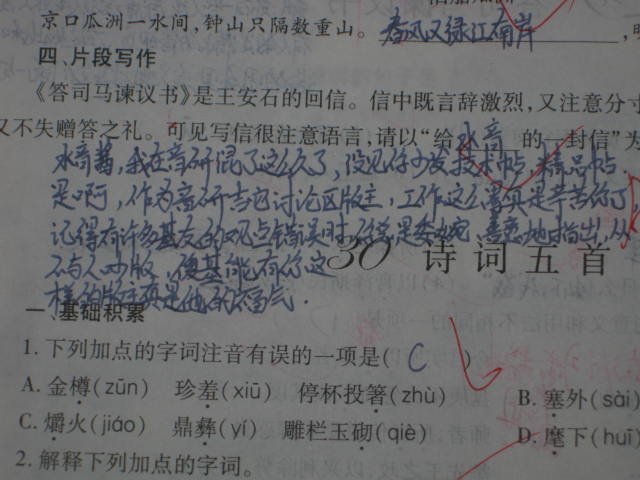 京口瓜洲一水间，钟山只隔数重山。春风又绿江南岸，明
四、片段写作
《答司马谏议书》是王安石的回信。信中既言辞激烈，又注意分寸
又不失赠答之礼。可见写信很注意语言，请以“给水音的一封信”为
水音酱，我在音研混了这么久了，没见你少发技术帖，精品帖.
是啊，作为音研吉它讨论区版主，工作这么 真是辛苦你了
记得有许多基友的观点错误时 你总是委婉 善意地指出，从
不与人 版 基能有你这
样的版主真是他的福气.
30 诗词五首
一、基础积累
1. 下列加点的字词注音有误的一项是( C )
A. 金樽(zūn) 珍羞(xiū) 停杯投箸(zhù) B. 塞外(sài)
C. 爝火(jiáo) 鼎彝(yí) 雕栏玉砌(qiè) D. 麾下(huī)
2. 解释下列加点的字词。